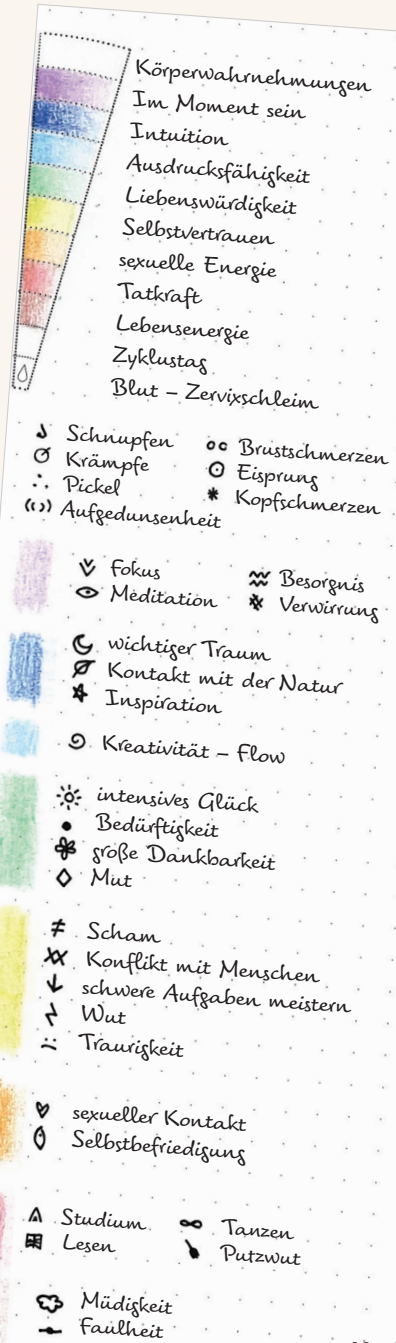 Körperwahrnehmungen
Im Moment sein
Intuition
Ausdrucksfähigkeit
Liebenswürdigkeit
Selbstvertrauen
sexuelle Energie
Tatkraft
Lebensenergie
Zyklustag
Blut – Zervixschleim
Schnupfen
Krämpfe
Pickel
Aufgedunsenheit
Brustschmerzen
Eisprung
Kopfschmerzen
Fokus
Meditation
Besorgnis
Verwirrung
wichtiger Traum
Kontakt mit der Natur
Inspiration
Kreativität – Flow
intensives Glück
Bedürftigkeit
große Dankbarkeit
Mut
Scham
Konflikt mit Menschen
schwere Aufgaben meistern
Wut
Traurigkeit
sexueller Kontakt
Selbstbefriedigung
Studium
Lesen
Tanzen
Putzwut
Müdigkeit
Faulheit